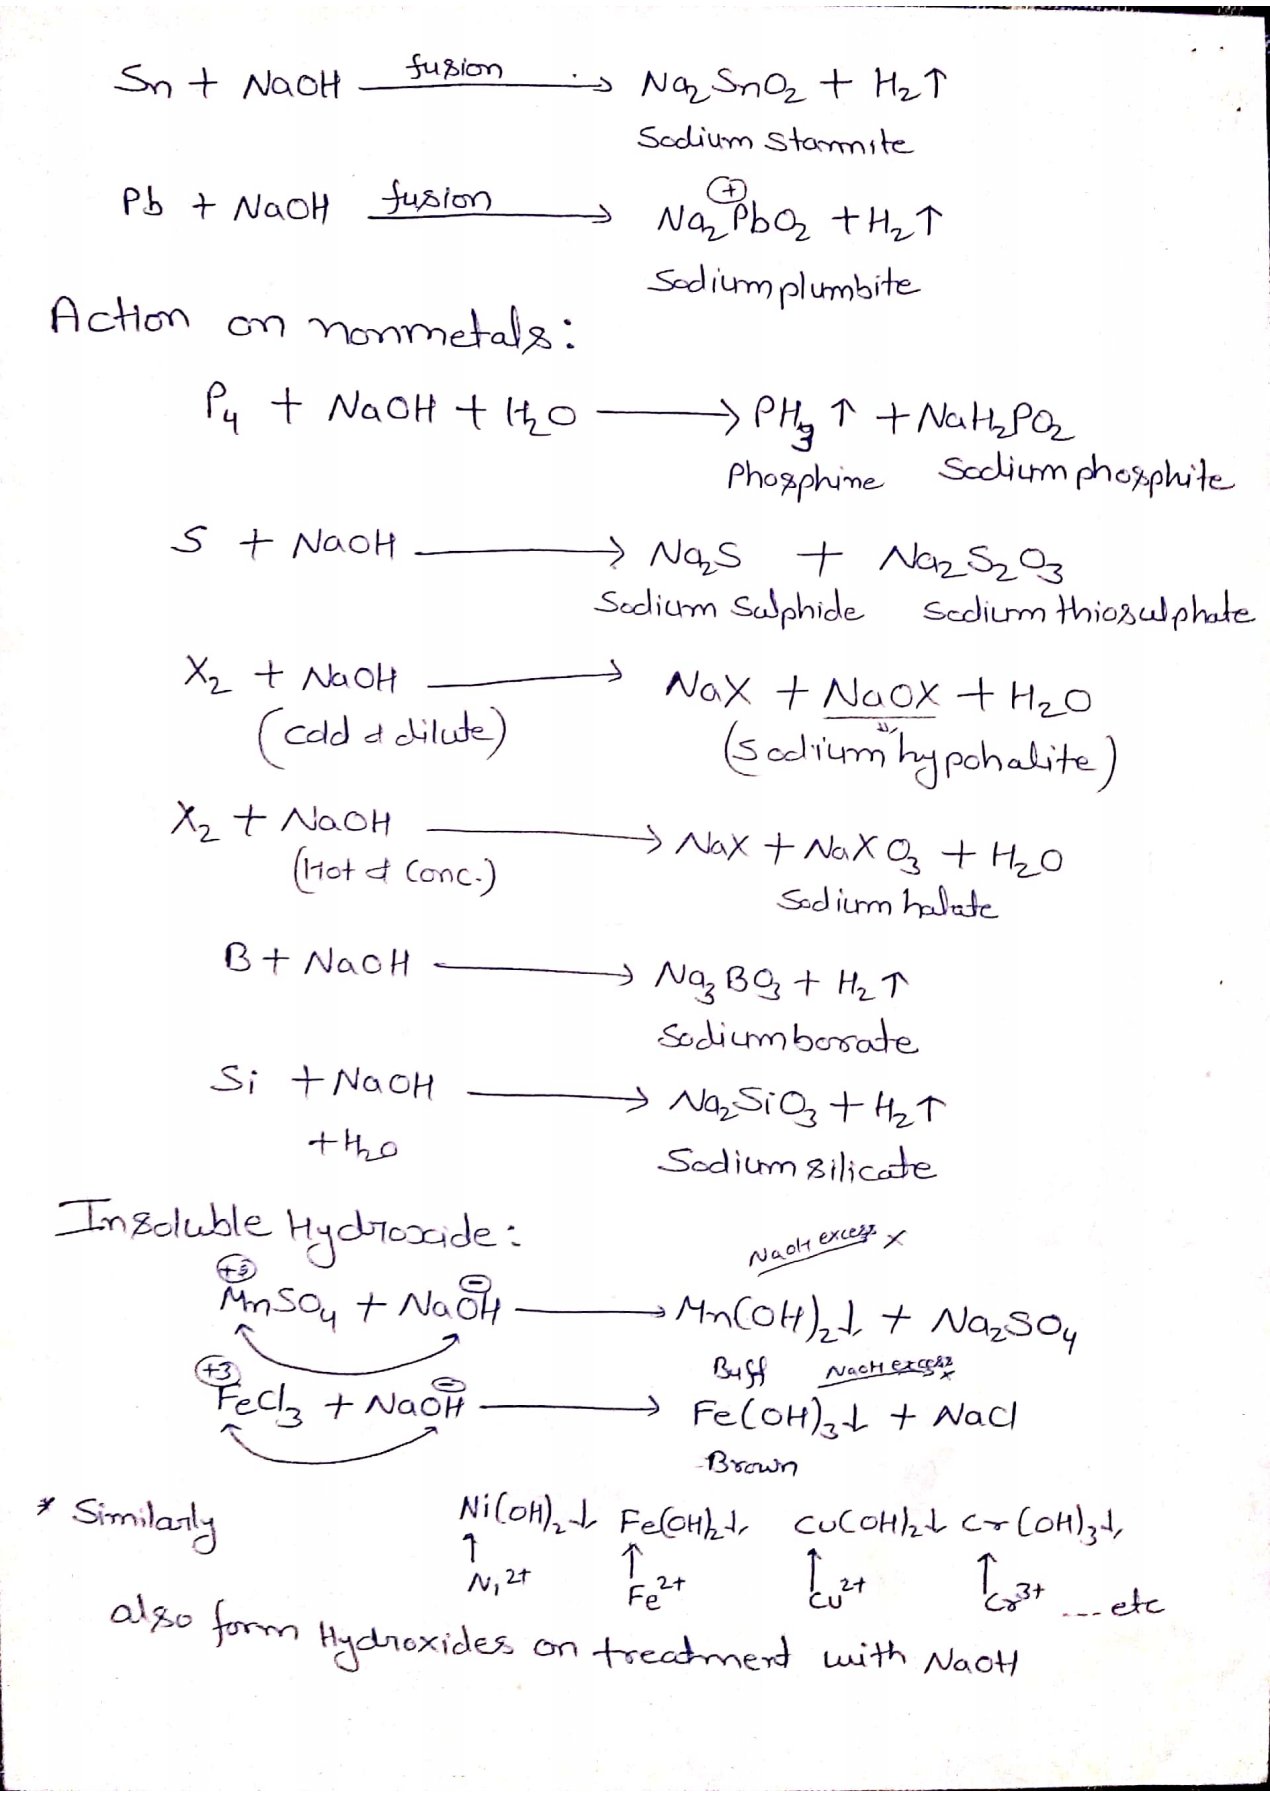 Sn + NaOH —fusion→ Na2SnO2 + H2↑
Sodium stannite
Pb + NaOH —fusion→ Na2PbO2 + H2↑
Sodium plumbite
Action on nonmetals:
P4 + NaOH + H2O → PH3↑ + NaH2PO2
Phosphine Sodium phosphite
S + NaOH → Na2S + Na2S2O3
Sodium Sulphide Sodium thiosulphate
X2 + NaOH → NaX + NaOX + H2O
(Cold & dilute) (Sodium hypohalite)
X2 + NaOH → NaX + NaXO3 + H2O
(Hot & Conc.) Sodium halate
B + NaOH → Na3BO3 + H2↑
Sodium borate
Si + NaOH → Na2SiO3 + H2↑
+ H2O
Sodium silicate
Insoluble Hydroxide:
NaOH excess x
MnSO4 + NaOH → Mn(OH)2↓ + Na2SO4
Buff NaOH excess x
+3 −
FeCl3 + NaOH → Fe(OH)3↓ + NaCl
Brown
* Similarly Ni(OH)2↓ Fe(OH)2↓, Cu(OH)2↓ Cr(OH)3↓,
↑ ↑ ↑ ↑
Ni2+ Fe2+ Cu2+ Cr3+ ....etc
also form Hydroxides on treatment with NaOH